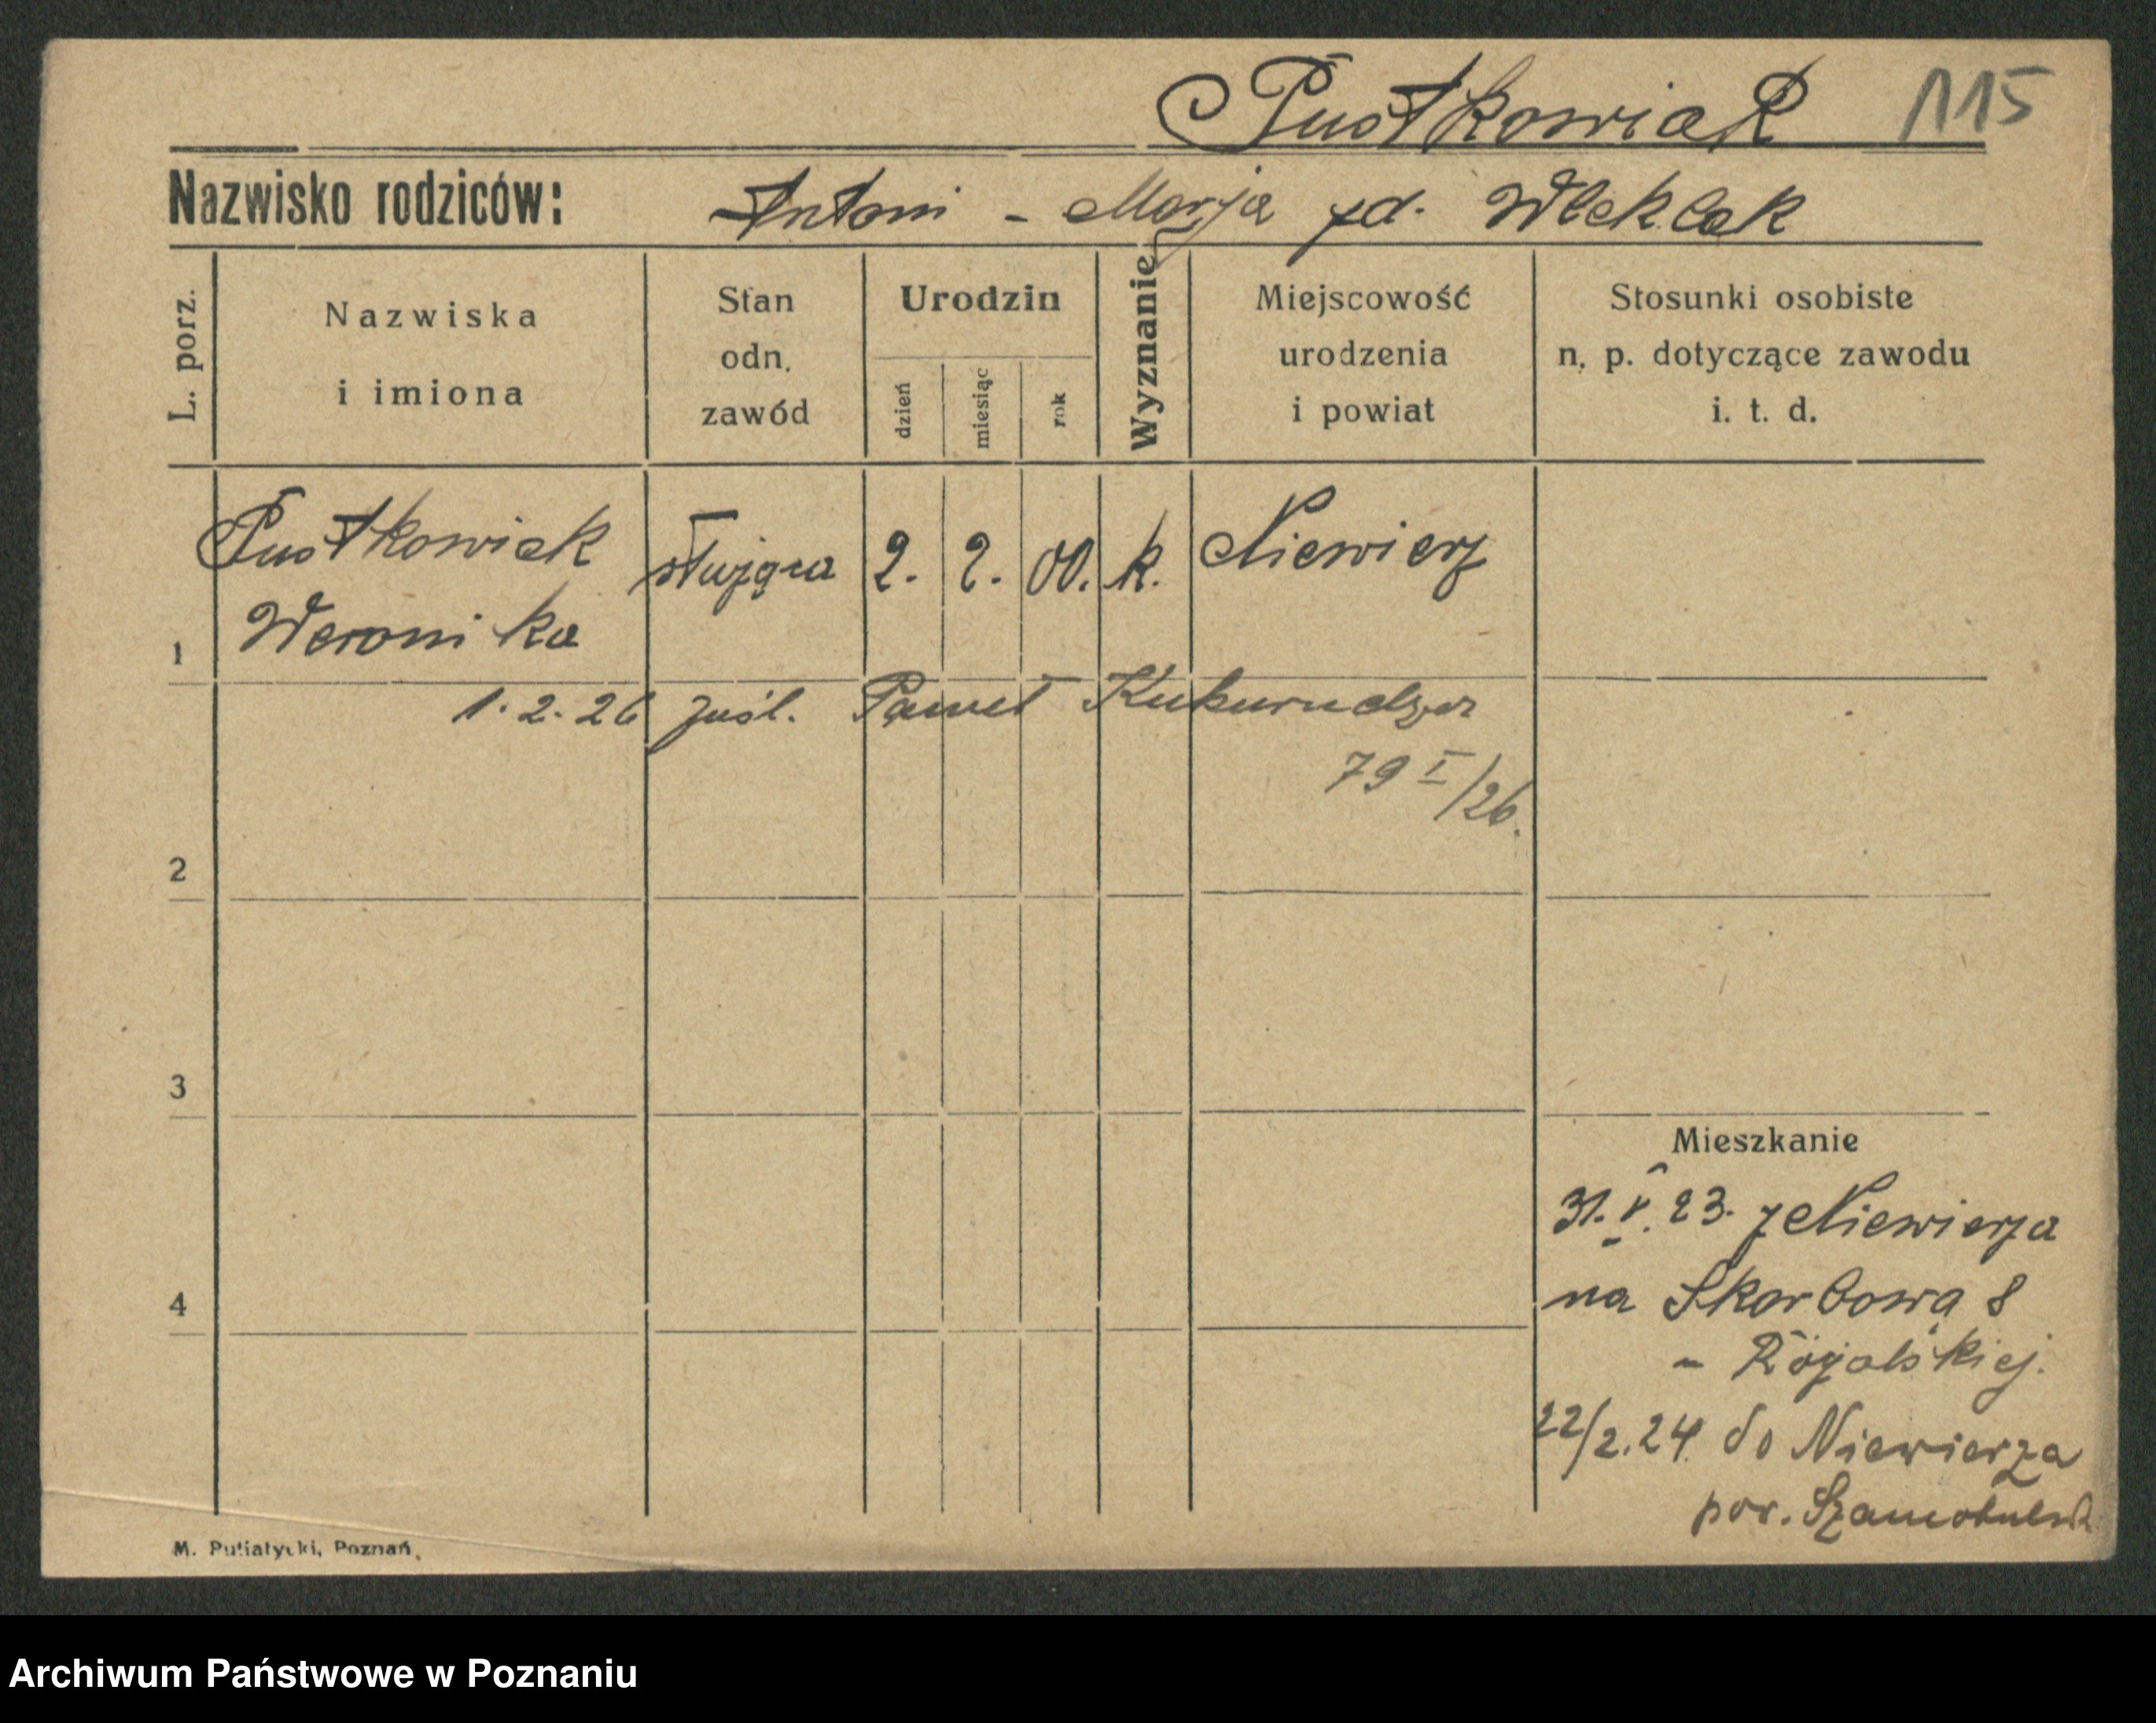 Pustkowiak 115
Nazwisko rodziców: Antoni - Marja zd. Wleklak
L. porz.
Nazwiska
i imiona
Stan
odn.
zawód
Urodzin
dzień
miesiąc
rok
Wyznanie
Miejscowość
urodzenia
i powiat
Stosunki osobiste
n. p. dotyczące zawodu
i. t. d.
Pustkowiak służąca 2. 2. 00. k. Niewierz
1 Weronika
1.2.26 zaśl. Paweł Kukurudza
79 I/26.
2
3
Mieszkanie
31.V.23. z Niewierza
na Skarbową 8
4
- Różalskiej.
22/2.24. do Niewierza
pow. Szamotulski
M. Putiatycki, Poznań.
Archiwum Państwowe w Poznaniu